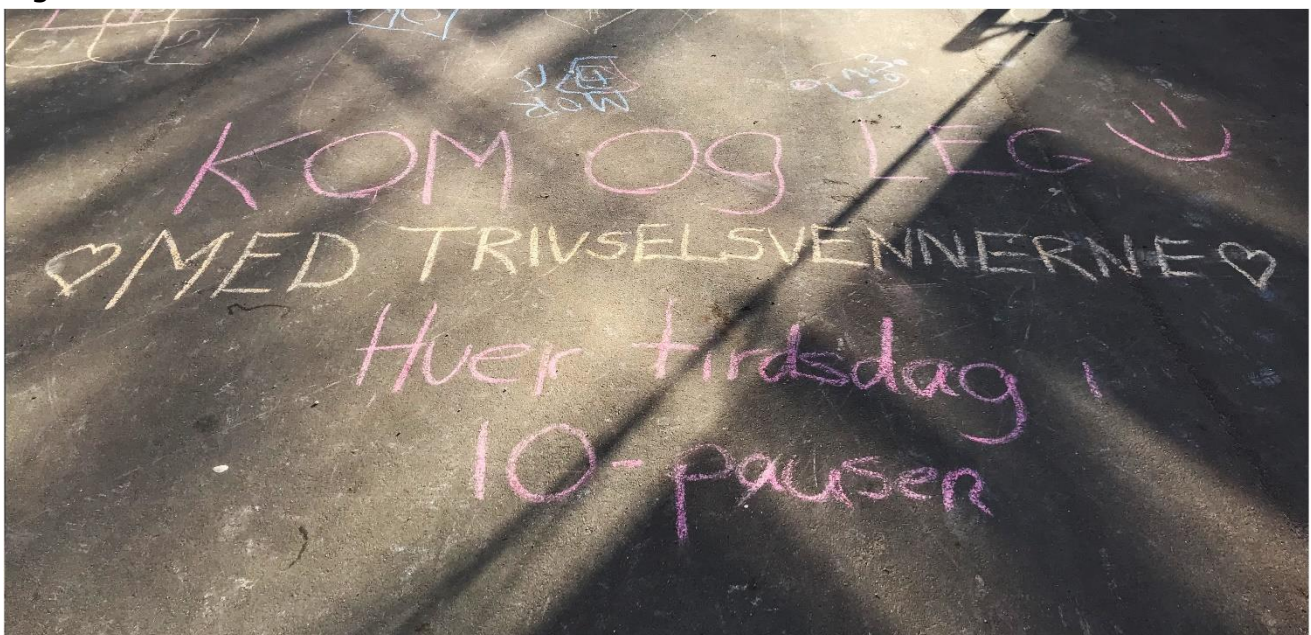 KOM Og LEG
MED TRIVSELSVENNERNE
Hver tirdsdag i
10-pausen